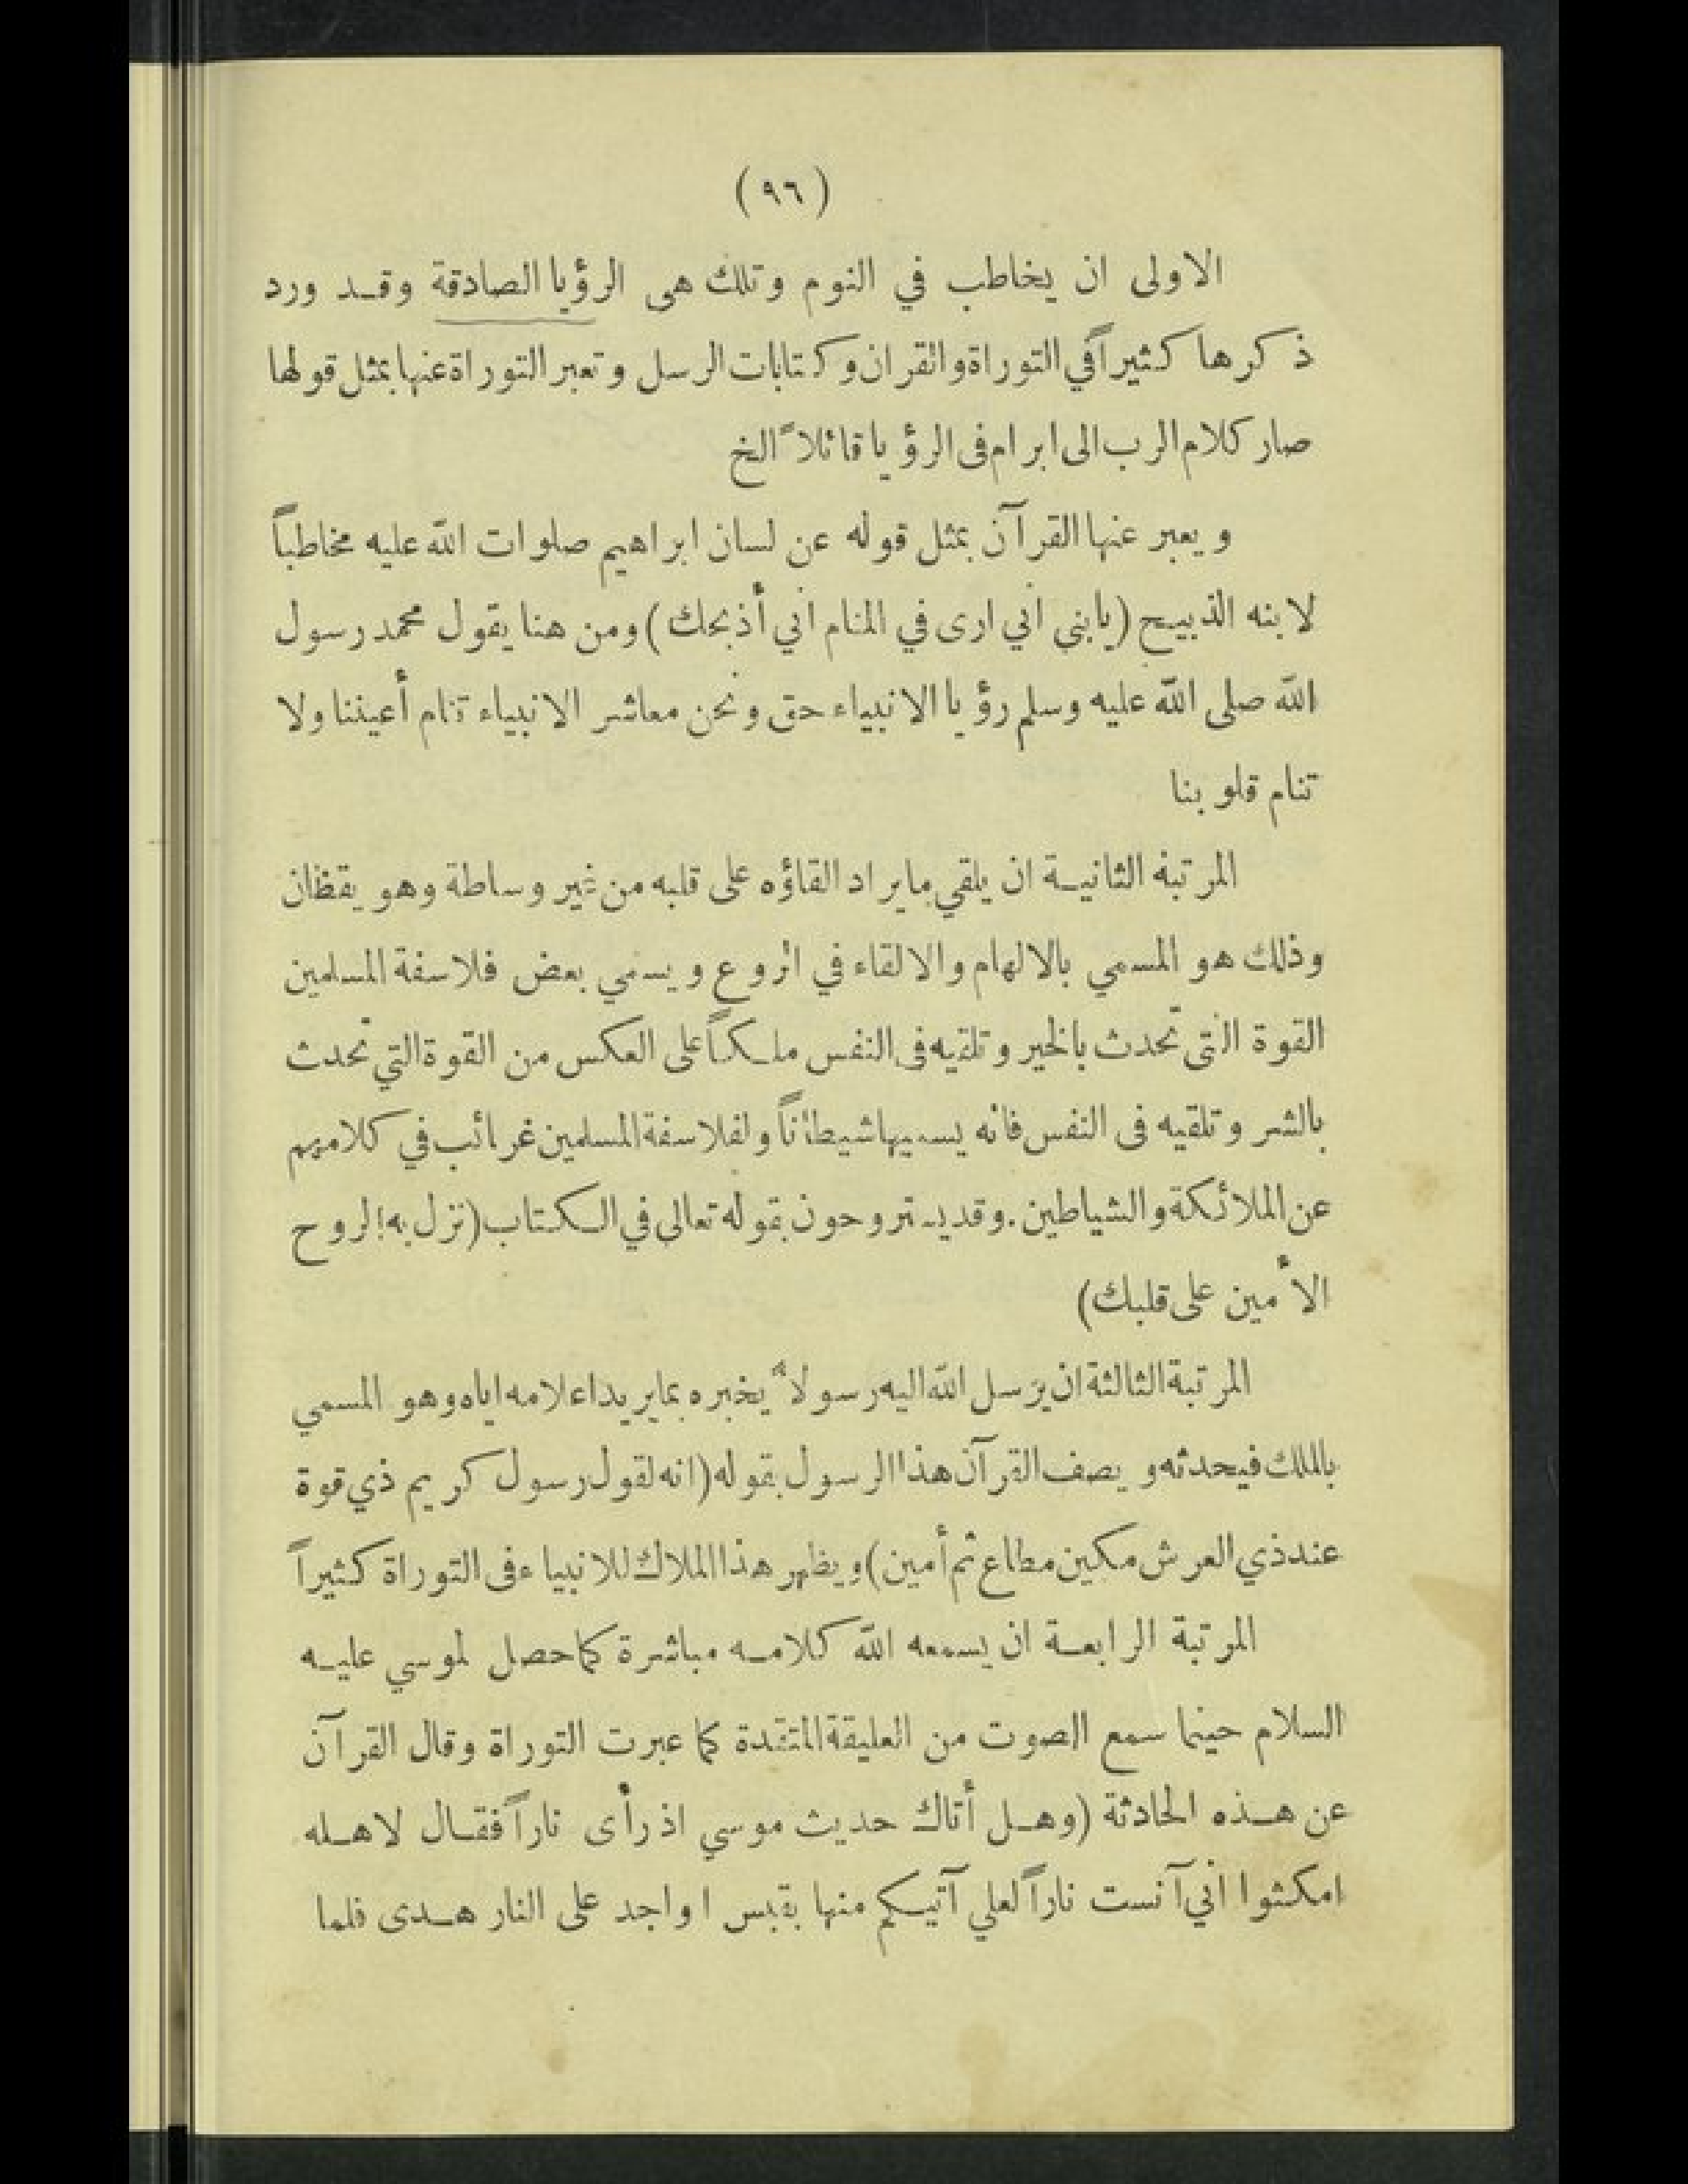 (٩٦)
الاولى ان يخاطب في النوم وتلك هى الرؤيا الصادقة وقد ورد
ذكرها كثيراً في التوراة والقران وكتابات الرسل وتعبر التوراة عنها بمثل قولها
صار كلام الرب الى ابرام فى الرؤيا قائلاً الخ
ويعبر عنها القرآن بمثل قوله عن لسان ابراهيم صلوات الله عليه مخاطباً
لابنه الذبيح (يابنى اني ارى في المنام اني أذبحك) ومن هنا يقول محمد رسول
الله صلى الله عليه وسلم رؤيا الانبياء حق ونحن معاشر الانبياء تنام أعيننا ولا
تنام قلوبنا
المرتبة الثانية ان يلقي مايراد القاؤه على قلبه من غير وساطة وهو يقظان
وذلك هو المسمي بالالهام والالقاء في الروع ويسمي بعض فلاسفة المسلمين
القوة التى تحدث بالخير وتلقيه فى النفس ملكاً على العكس من القوة التي تحدث
بالشر وتلقيه فى النفس فانه يسميها شيطاناً ولفلاسفة المسلمين غرائب في كلامهم
عن الملائكة والشياطين. وقد يستروحون بقوله تعالى في الكتاب (نزل به الروح
الأمين على قلبك)
المرتبة الثالثة ان يرسل الله اليه رسولاً يخبره بمايريد اعلامه اياه وهو المسمي
بالملك فيحدثه ويصف القرآن هذا الرسول بقوله (انه لقول رسول كريم ذي قوة
عند ذي العرش مكين مطاع ثم أمين) ويظهر هذا الملاك للانبياء فى التوراة كثيراً
المرتبة الرابعة ان يسمعه الله كلامه مباشرة كما حصل لموسي عليه
السلام حينما سمع الصوت من العليقة المتقدة كما عبرت التوراة وقال القرآن
عن هذه الحادثة (وهل أتاك حديث موسي اذ رأى ناراً فقال لاهله
امكثوا اني آنست ناراً لعلي آتيكم منها بقبس او اجد على النار هدى فلما